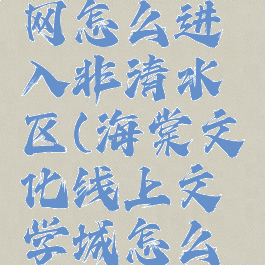 网怎么进
入非清水
区(海棠文
化线上文
学城怎么